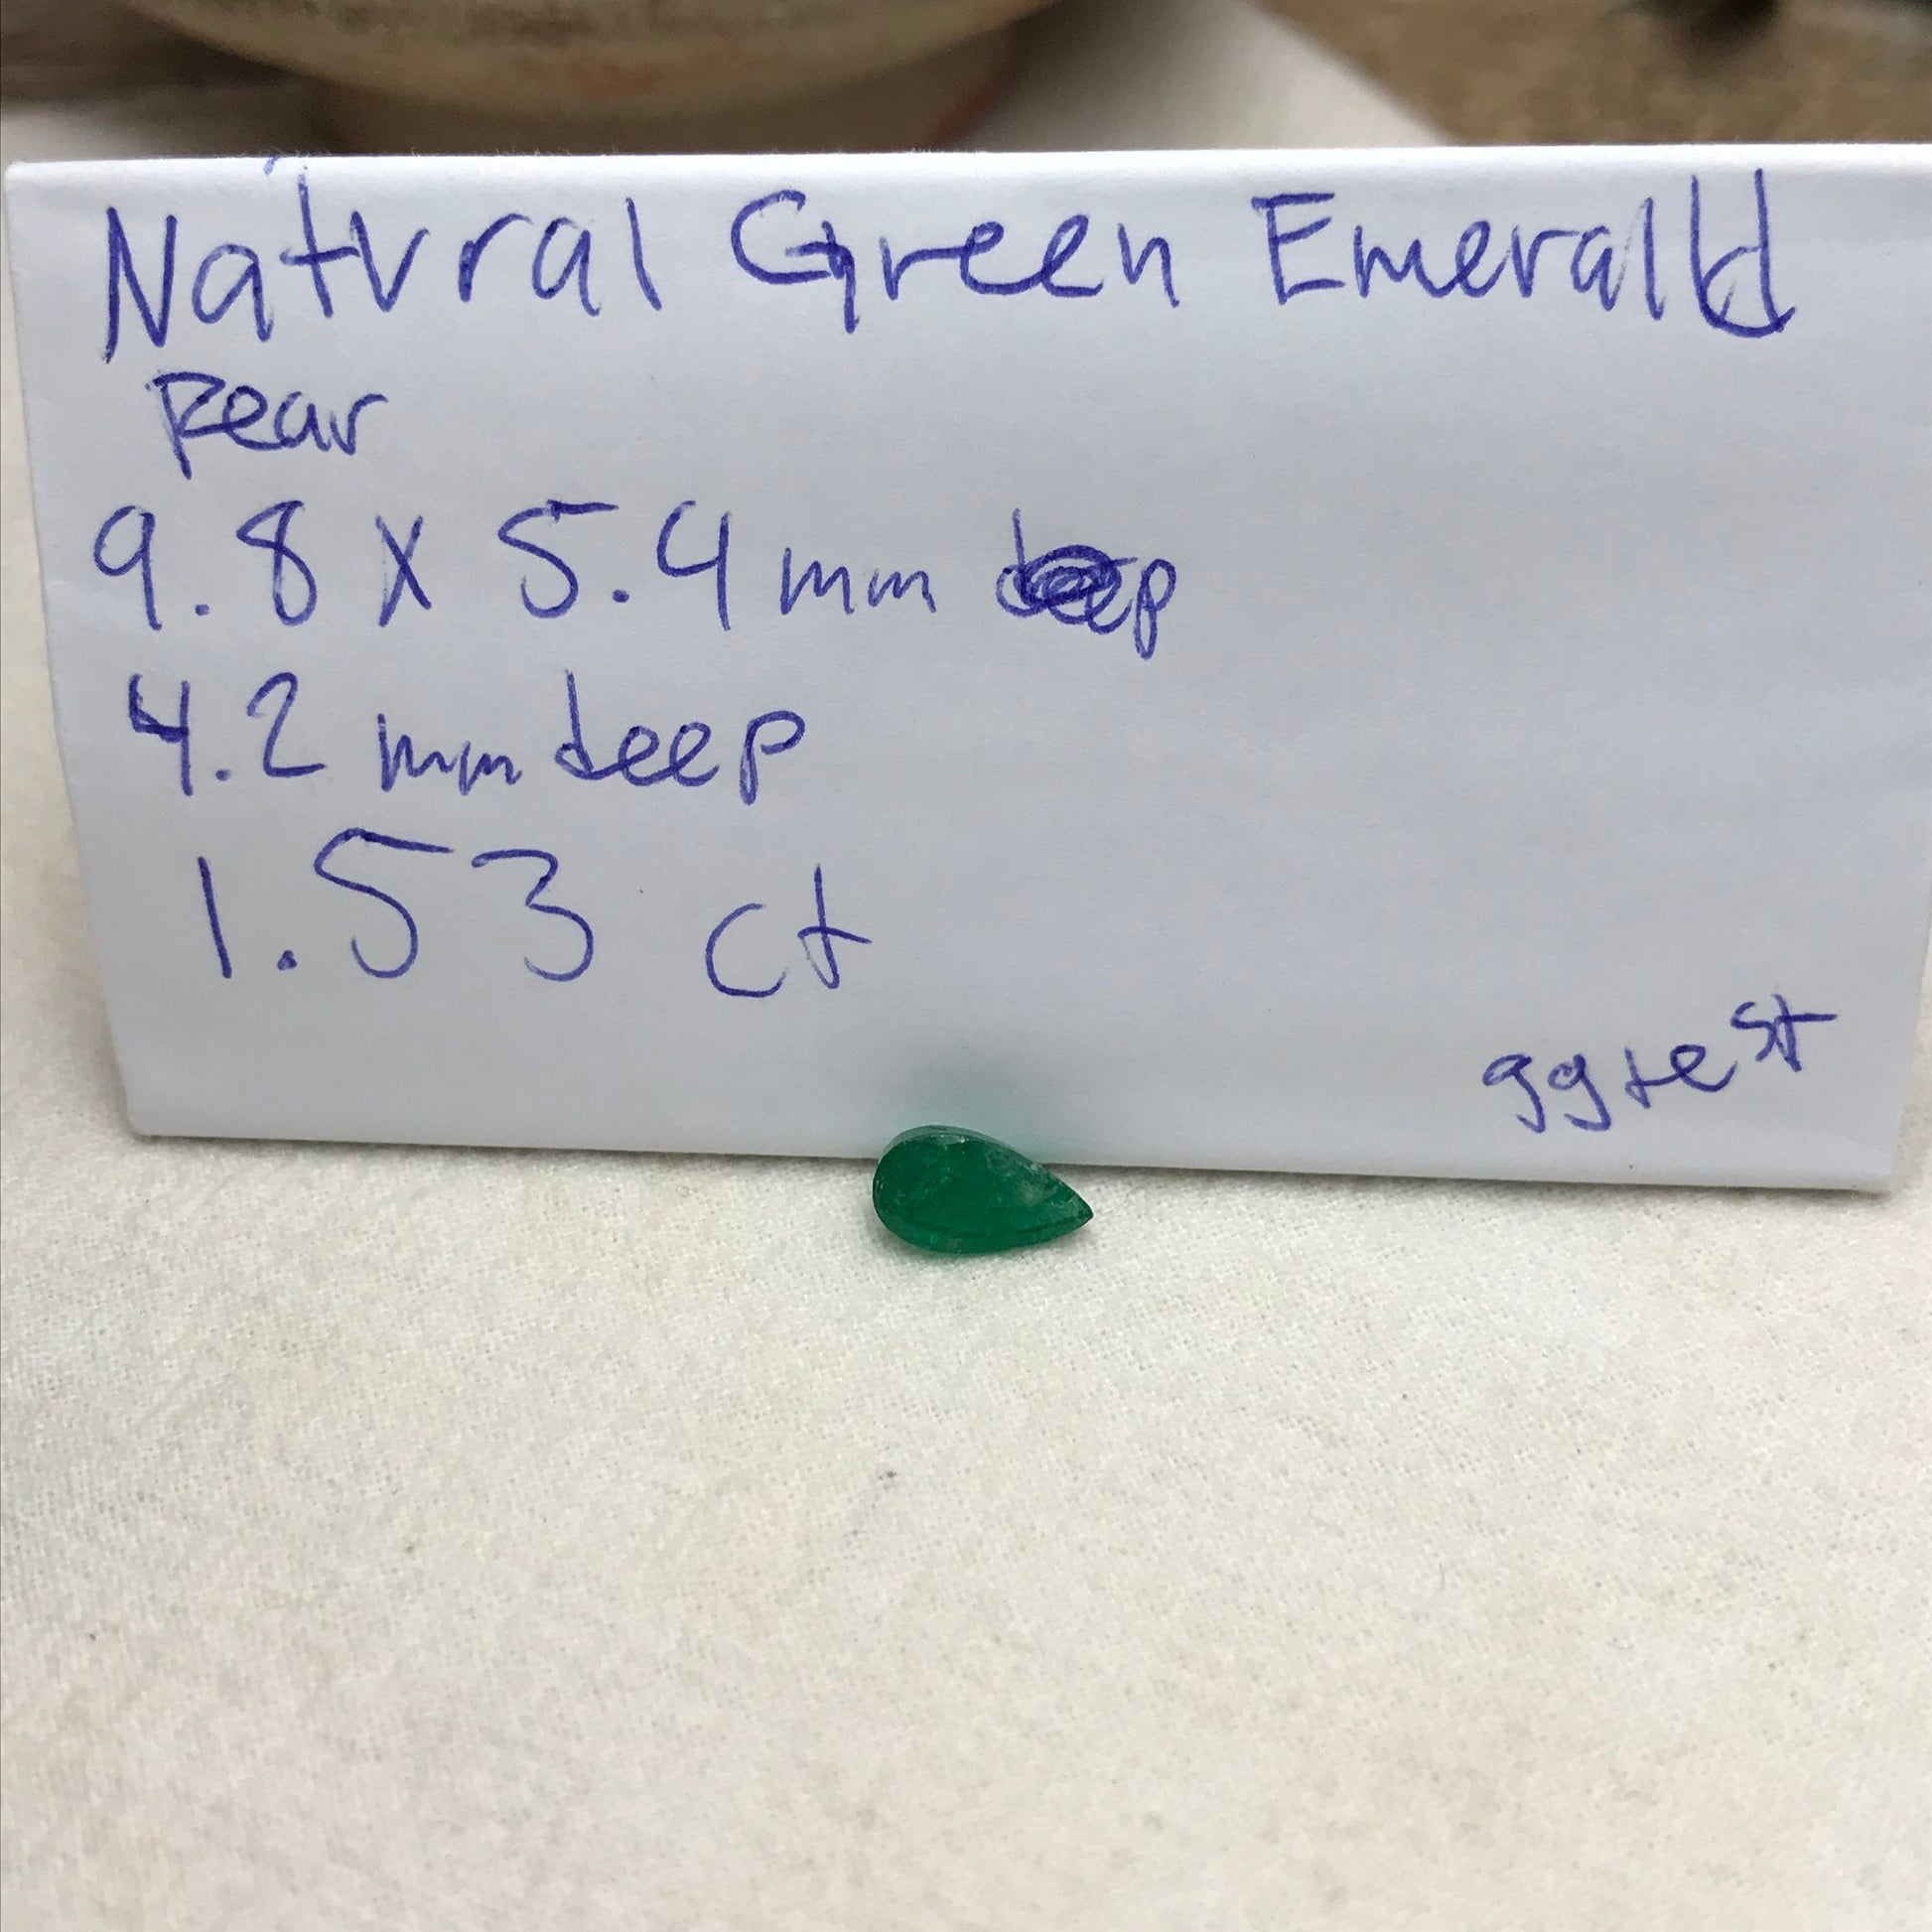 Natural Green Emerald
Pear
9.8 x 5.4 mm
4.2 mm deep
1.53 ct
ggtest